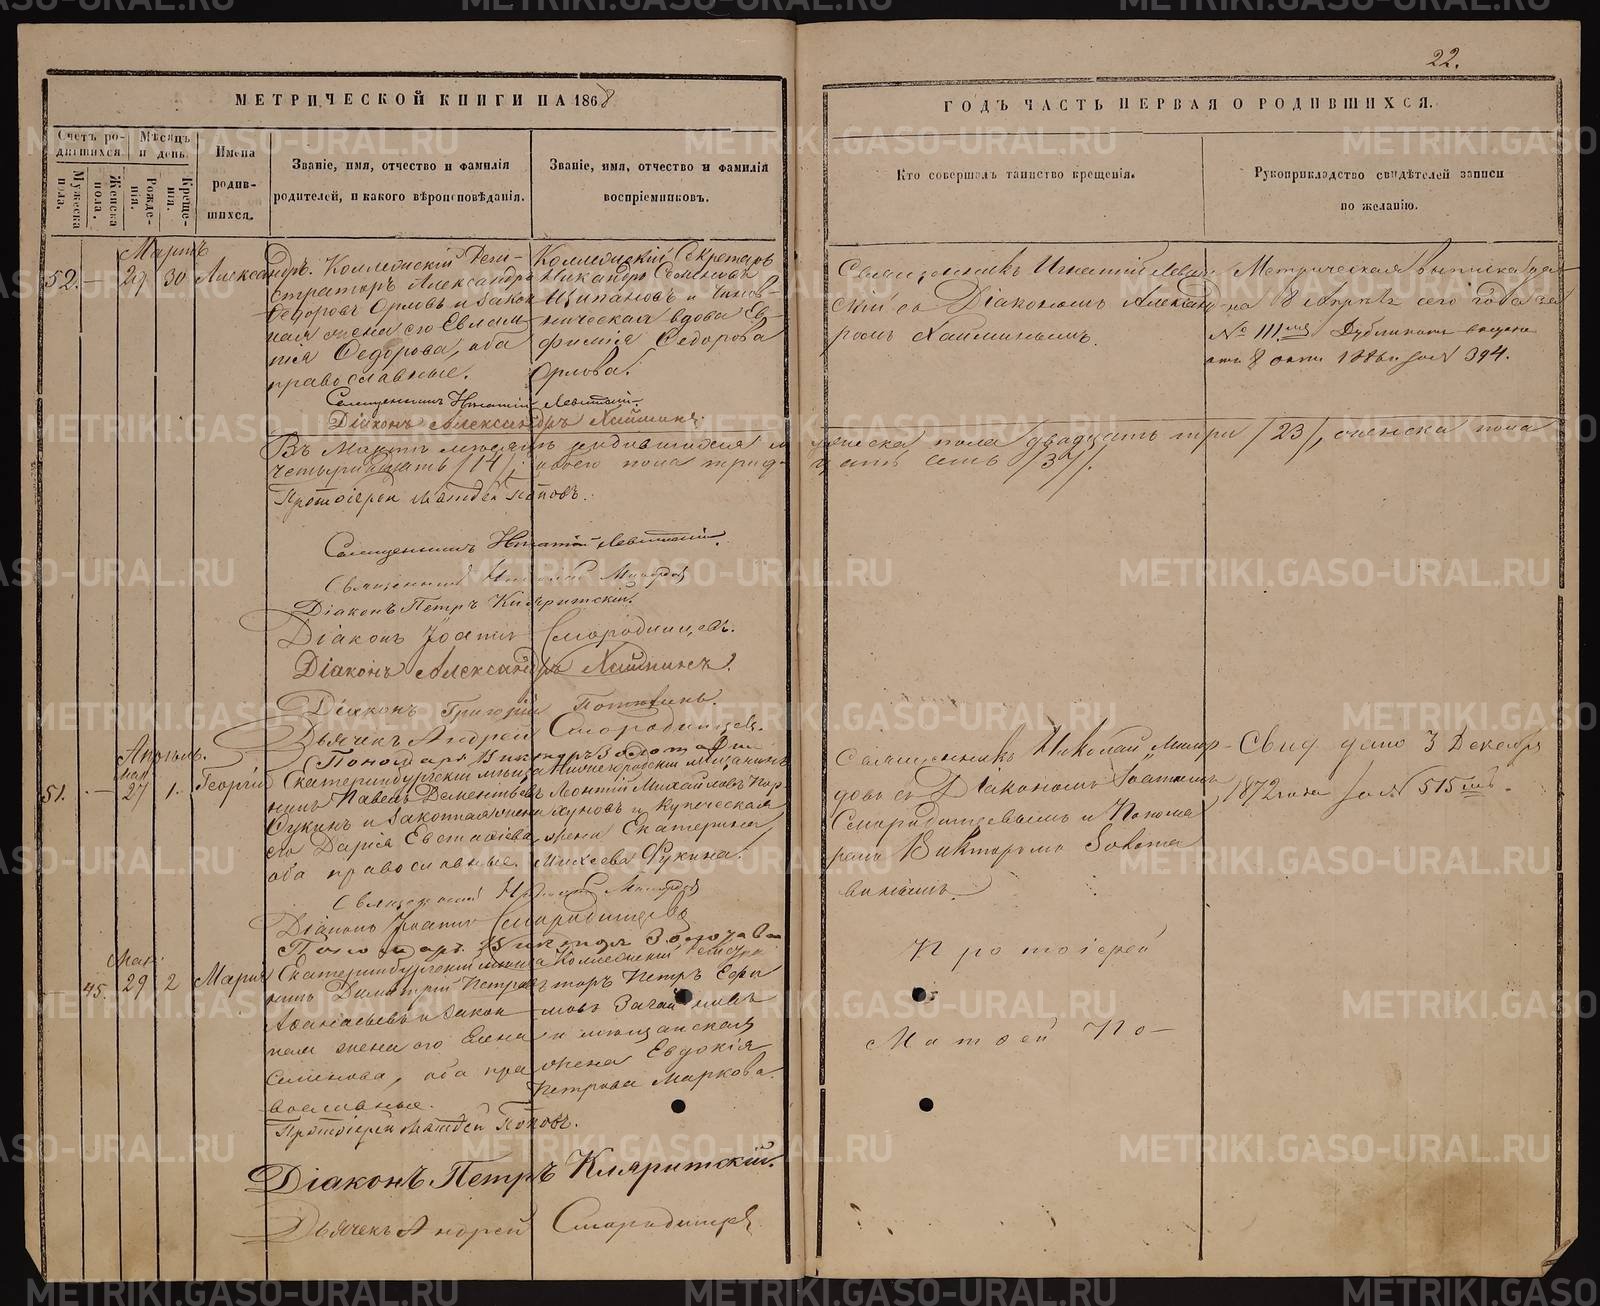 22.
МЕТРИЧЕСКОЙ КНИГИ НА 1868
ГОДЪ ЧАСТЬ ПЕРВАЯ О РОДИВШИХСЯ.
Счетъ родившихся.
Мужеска пола.
Женска пола.
Мѣсяцъ и день.
Рожденія.
Крещенія.
Имена родившихся.
Званіе, имя, отчество и фамилія
родителей, и какого вѣроисповѣданія.
Званіе, имя, отчество и фамилія
воспріемниковъ.
Кто совершалъ таинство крещенія.
Рукоприкладство свидѣтелей записи
по желанію.
Мартъ
52. — 29 30 Александръ.
Коллежскій Реги-
страторъ Александръ
Федоровъ Орловъ и закон
ная жена его Евлам
пія Федорова, оба
православные.
Коллежскій Секретарь
Никандръ Семеновъ
Ципановъ и Чинов-
ническая вдова Ев
фимія Федорова
Орлова.
Священникъ Игнатій Левит
скій съ Діакономъ Александ
ромъ Хайминымъ.
Метрическая выписка
на 8 Апрѣля сего года за
№ 111 Дубликатъ выданъ
394.
Священникъ Игнатій Левитскій.
Діаконъ Александръ Хайминъ.
Въ Мартѣ мѣсяцѣ родившихся му
жеска пола двадцать три /23/, женска пола
четырнадцать /14/; обоего пола трид-
цать семь /37/.
Протоіерей Матѳей Поповъ.
Священникъ Игнатій Левитскій.
Священникъ
Діаконъ Петръ Кляритскій.
Діаконъ Іоаннъ Смородинцевъ.
Діаконъ Александръ Хайминъ.
Діаконъ Григорій
Дьячекъ Андрей Смородинцевъ.
Пономарь Викторъ Золотавинъ
Апрѣль.
Мар.
51. — 27 1. Георгій
Екатеринбургскій мѣща
нинъ Павелъ Дементьевъ
Фукинъ и законная жена
его Дарія Евстафіева,
оба православные.
мѣщанинъ
Леонтій Михайловъ
и купеческая
жена Екатерина
Михеева Фукина.
Священникъ Николай
съ Діакономъ Іоанномъ
Смородинцевымъ и Понома
ремъ Викторомъ Золота
винымъ.
Свид. дано 3 Декабря
1872 года за № 515
Священникъ
Діаконъ Іоаннъ Смородинцевъ
Пономарь Викторъ Золотавинъ
Мар.
45. 29 2 Марія
Екатеринбургскій мѣща
нинъ Димитрій Петровъ
Аѳанасьевъ и закон
ная жена его Елена
Семенова, оба пра
вославные.
Коллежскій
Петръ Ефи
мовъ
и мѣщанская
жена Евдокія
Петрова Маркова.
Протоіерей
Матѳей По-
Протоіерей Матѳей Поповъ.
Діаконъ Петръ Кляритскій.
Дьячекъ Андрей Смородинцевъ
METRIKI.GASO-URAL.RU